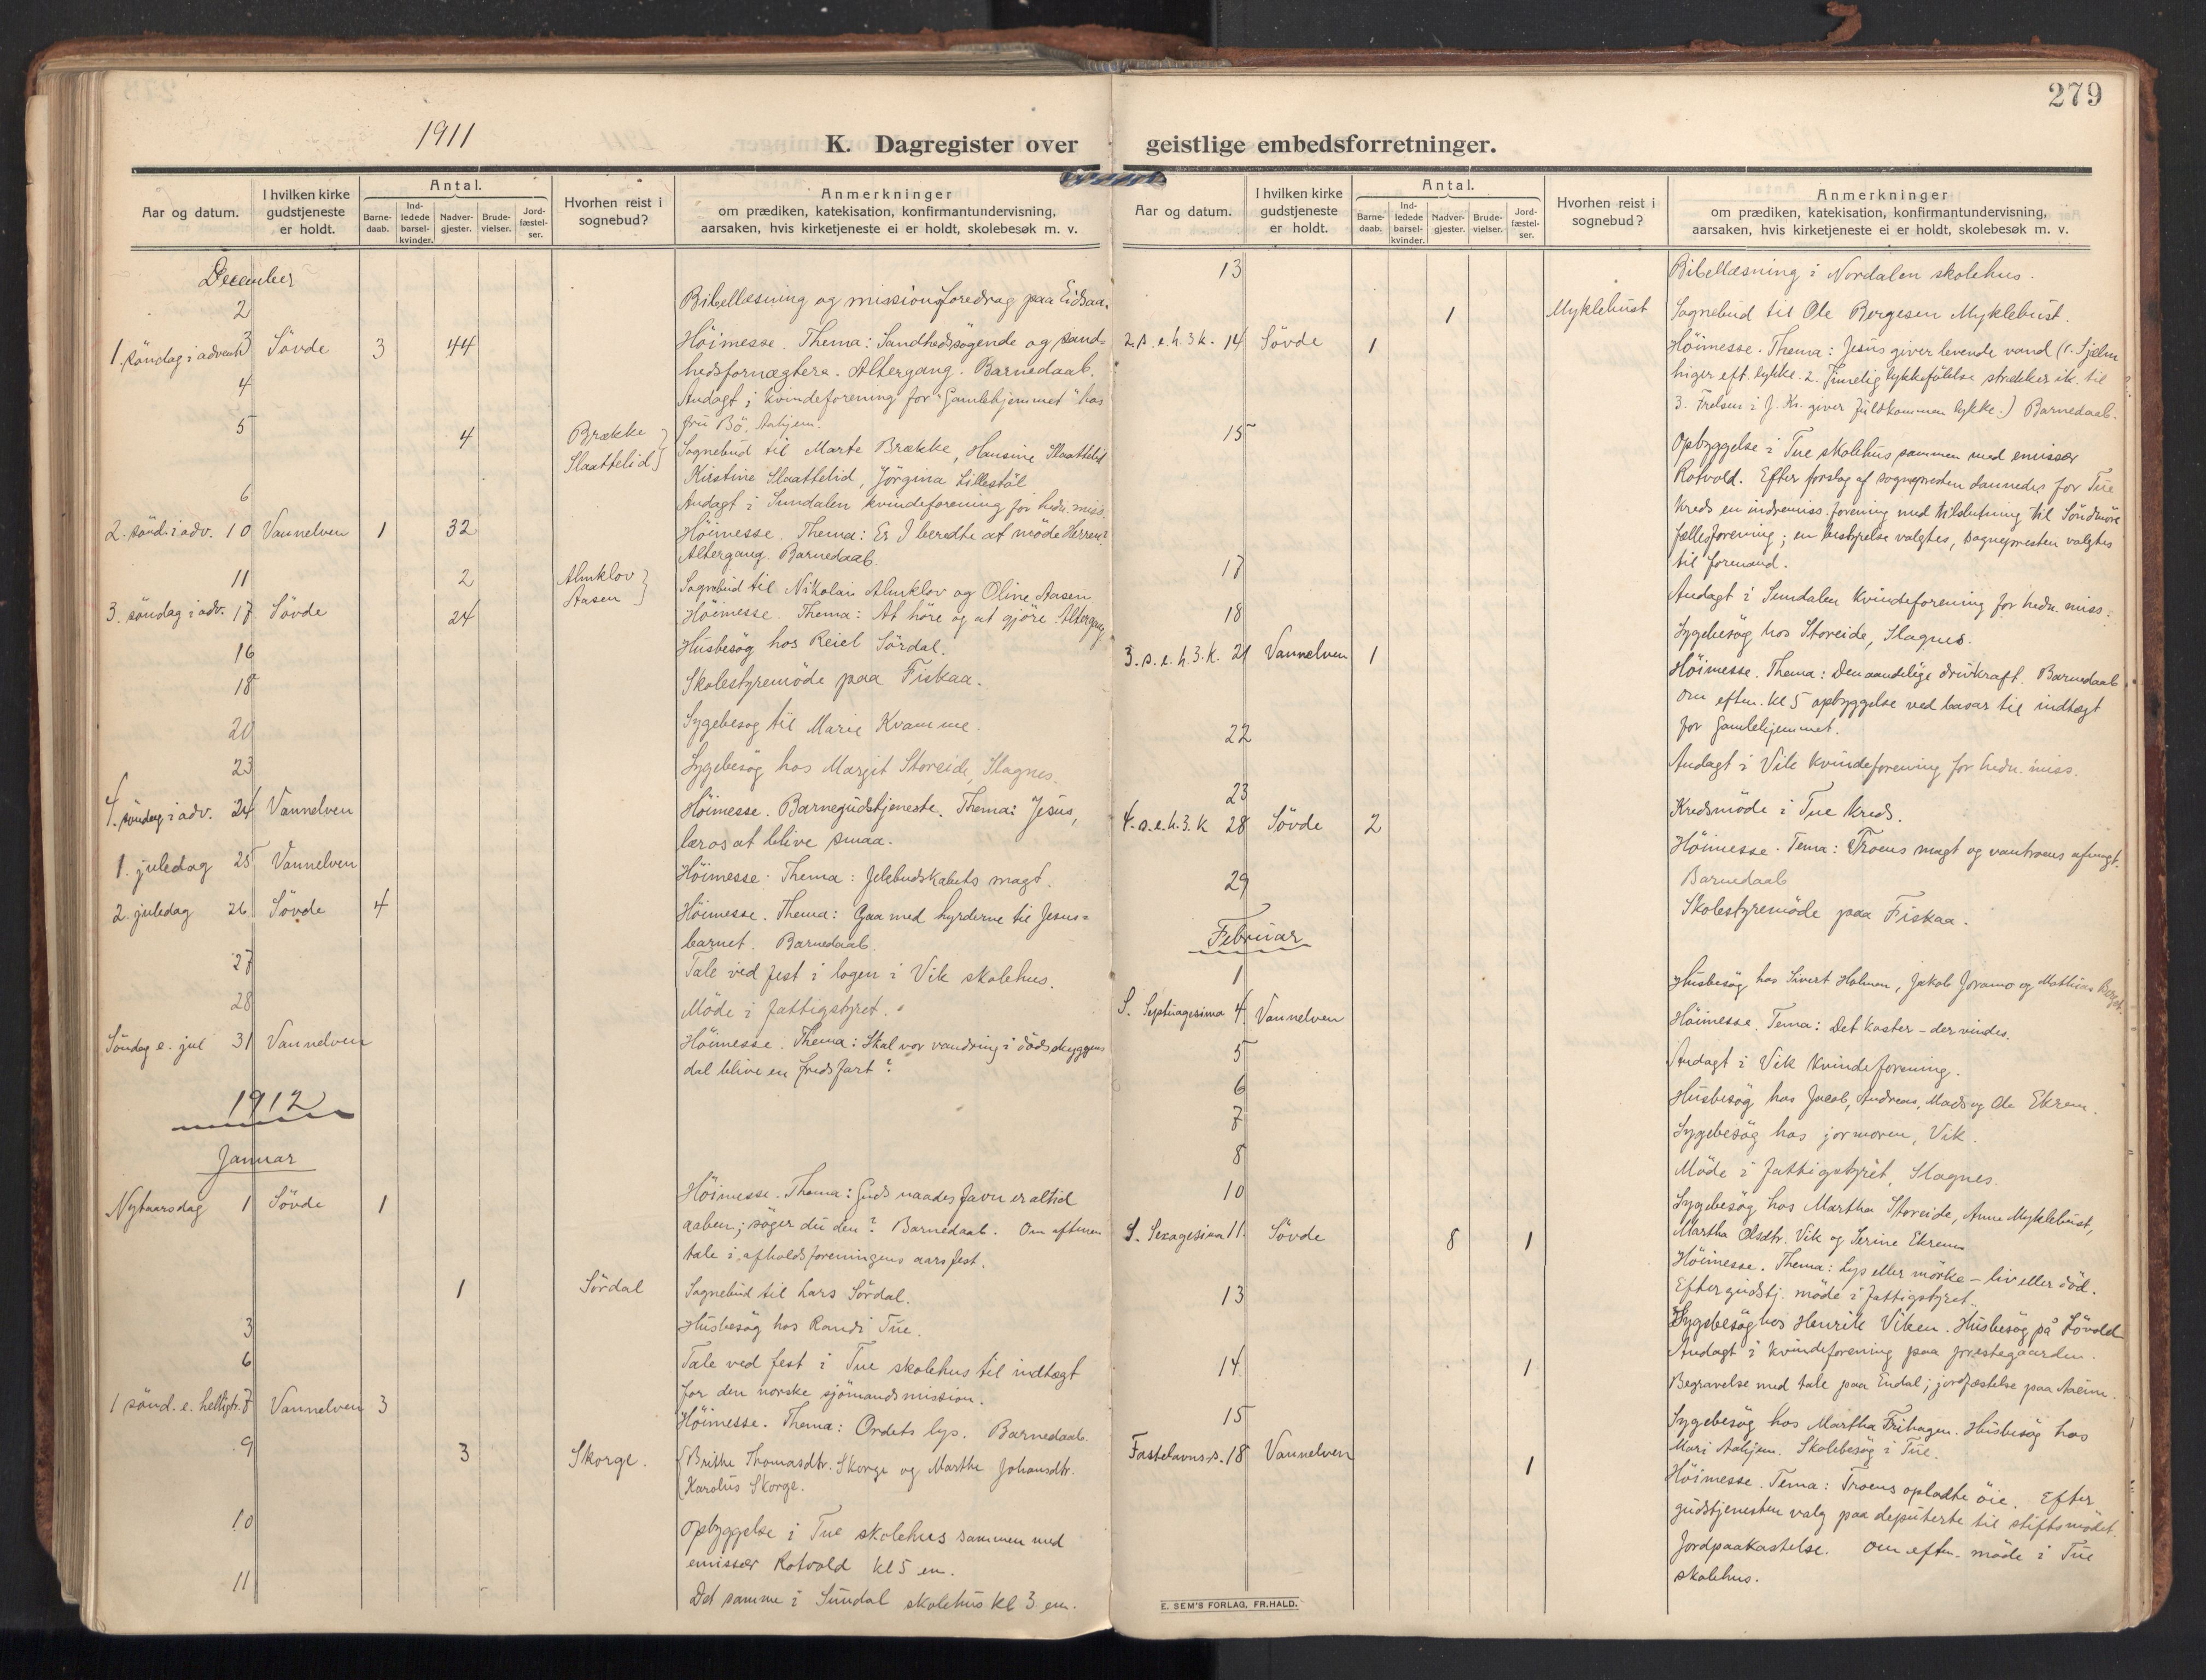 279
1911
K. Dagregister over
Aar og datum.
I hvilken kirke gudstjeneste er holdt.
Antal.
Barne-daab.
Ind-ledede barsel-kvinder.
Nadver-gjester.
Brude-vielser.
Jord-fæstel-ser.
Hvorhen reist i sognebud?
Anmerkninger
om prædiken, katekisation, konfirmantundervisning,
aarsaken, hvis kirketjeneste ei er holdt, skolebesøk m. v.
December
2 Bibellæsning og missionsforedrag paa Eidsaa.
1. söndag i advent 3 Sövde 3 44 Höimesse. Thema: Sandhedssøgende og sand=
hedsfornægtere. Altergang. Barnedaab.
4 Andagt i kvindeforening for "Gamlehjemmet" hos
fru Bö, Aahjem.
5 4 Brække Slaattelid Sognebud til Marte Brække, Hansine Slaattelid
Kirstine Slaattelid, Jörgina Lillestöl
6 Andagt i Sundalen kvindeforening for hedn. miss.
2. sönd. i adv. 10 Vannelven 1 32 Höimesse. Thema: Er I beredte at møde Herren?
Altergang. Barnedaab.
11 2 Almklov Aasen Sognebud til Nikolai Almklov og Oline Aasen
3. söndag i adv. 17 Sövde 24 Höimesse. Thema: At höre og at gjöre. Altergang
16 Husbesøg hos Reiel Sördal.
18 Skolestyremöde paa Fiskaa.
20 Sygebesøg til Marie Kvamme.
23 Sygebesøg hos Margit Storeide, Slagnes.
4. söndag i adv. 24 Vannelven Höimesse. Barnegudstjeneste. Thema: Jesus,
lær os at blive smaa.
1. juledag 25 Vannelven Höimesse. Thema: Julebudskabets magt.
2. juledag 26 Sövde 4 Höimesse. Thema: Gaa med hyrderne til Jesus=
barnet. Barnedaab.
27 Tale ved fest i logen i Vik skolehus.
28 Möde i fattigstyret.
Söndag e. jul 31 Vannelven Höimesse. Thema: Skal vor vandring i dödsskyggens
dal blive en fredsfart?
1912
Januar
Nytaarsdag 1 Sövde 1 Höimesse. Thema: Guds naades favn er altid
aaben; söger du den? Barnedaab. Om aftenen
tale i afholdsforeningens aarsfest.
1 Sördal Sognebud til Lars Sördal.
3 Husbesøg hos Randi Tue.
6 Tale ved fest i Tue skolehus til indtægt
for den norske sjömandsmission.
1 sönd. e. helligtr. 7 Vannelven 3 Höimesse. Thema: Ordets lys. Barnedaab.
9 3 Skorge. Brithe Thomasdtr. Skorge og Marthe Johansdtr.
Karolus Skorge.
10 Opbyggelse i Tue skolehus sammen med
emissær Rotvold kl 5 em.
11 Det samme i Sundal skolehus kl 3 em.
geistlige embedsforretninger.
Aar og datum.
I hvilken kirke gudstjeneste er holdt.
Antal.
Barne-daab.
Ind-ledede barsel-kvinder.
Nadver-gjester.
Brude-vielser.
Jord-fæstel-ser.
Hvorhen reist i sognebud?
Anmerkninger
om prædiken, katekisation, konfirmantundervisning,
aarsaken, hvis kirketjeneste ei er holdt, skolebesøk m. v.
13 Bibellæsning i Nordalen skolehus.
1 Myklebust Sognebud til Ole Borgesen Myklebust.
2. s. e. h. 3 k. 14 Sövde 1 Höimesse. Thema: Jesus giver levende vand (1. Sjælen
higer eft. lykke. 2. Timelig lykkefölelse strækker ik. til
3. Frelsen i J. Kr. giver fuldkommen lykke.) Barnedaab.
15 Opbyggelse i Tue skolehus sammen med emissær
Rotvold. Efter forslag af sognepresten dannedes for Tue
kreds en indremiss. forening med tilslutning til Söndmöre
fællesforening; en bestyrelse valgtes, sognepresten valgtes
til formand.
17 Andagt i Sundalen kvindeforening for hedn. miss.
18 Sygebesøg hos Storeide, Slagnes.
3. s. e. h. 3. k. 21 Vannelven 1 Höimesse. Thema: Den aandelige drivkraft. Barnedaab
Om eftm. kl 5 opbyggelse ved basar til indtægt
for Gamlehjemmet.
22 Andagt i Vik kvindeforening for hedn. miss.
23 Kredsmöde i Tue kreds.
4. s. e. h. 3. k 28 Sövde 2 Höimesse. Tema: Troens magt og vantroens afmagt.
Barnedaab
29 Skolestyremöde paa Fiskaa.
Februar
1 Husbesøg hos Sivert Holmen, Jakob Joramo og Mathias
S. Septuagesima 4 Vannelven Höimesse. Tema: Det koster – der vindes.
5 Andagt i Vik kvindeforening.
6 Husbesøg hos Jacob, Andreas, Mads og Ole Ekrem.
7 Sygebesøg hos jormoren, Vik.
8 Möde i fattigstyret, Slagnes.
10 Sygebesøg hos Martha Storeide, Anne Myklebust,
Martha Olsdtr. Vik og Serine Ekrem
S. Sexagesima 11. Sövde 8 1 Höimesse. Thema: Lys eller mörke – liv eller död.
Efter gudstj. möde i fattigstyret.
13 Sygebesøg hos Henrik Viken. Husbesøg på Lövold
Andagt i kvindeforening paa prestegaarden.
14 1 Begravelse med tale paa Endal; jordfæstelse paa Aaeim.
15 Sygebesøg hos Martha Frihagen. Husbesøg hos
Mari Aahjem. Skolebesøg i Tue.
Fastelavns s. 18 Vannelven 1 Höimesse. Tema: Troens opladte öie. Efter
gudstjenesten valg paa deputerte til stiftsmödet.
Jordpaakastelse. Om eftm. möde i Tue
skolehus.
E. SEM'S FORLAG, FR.HALD.